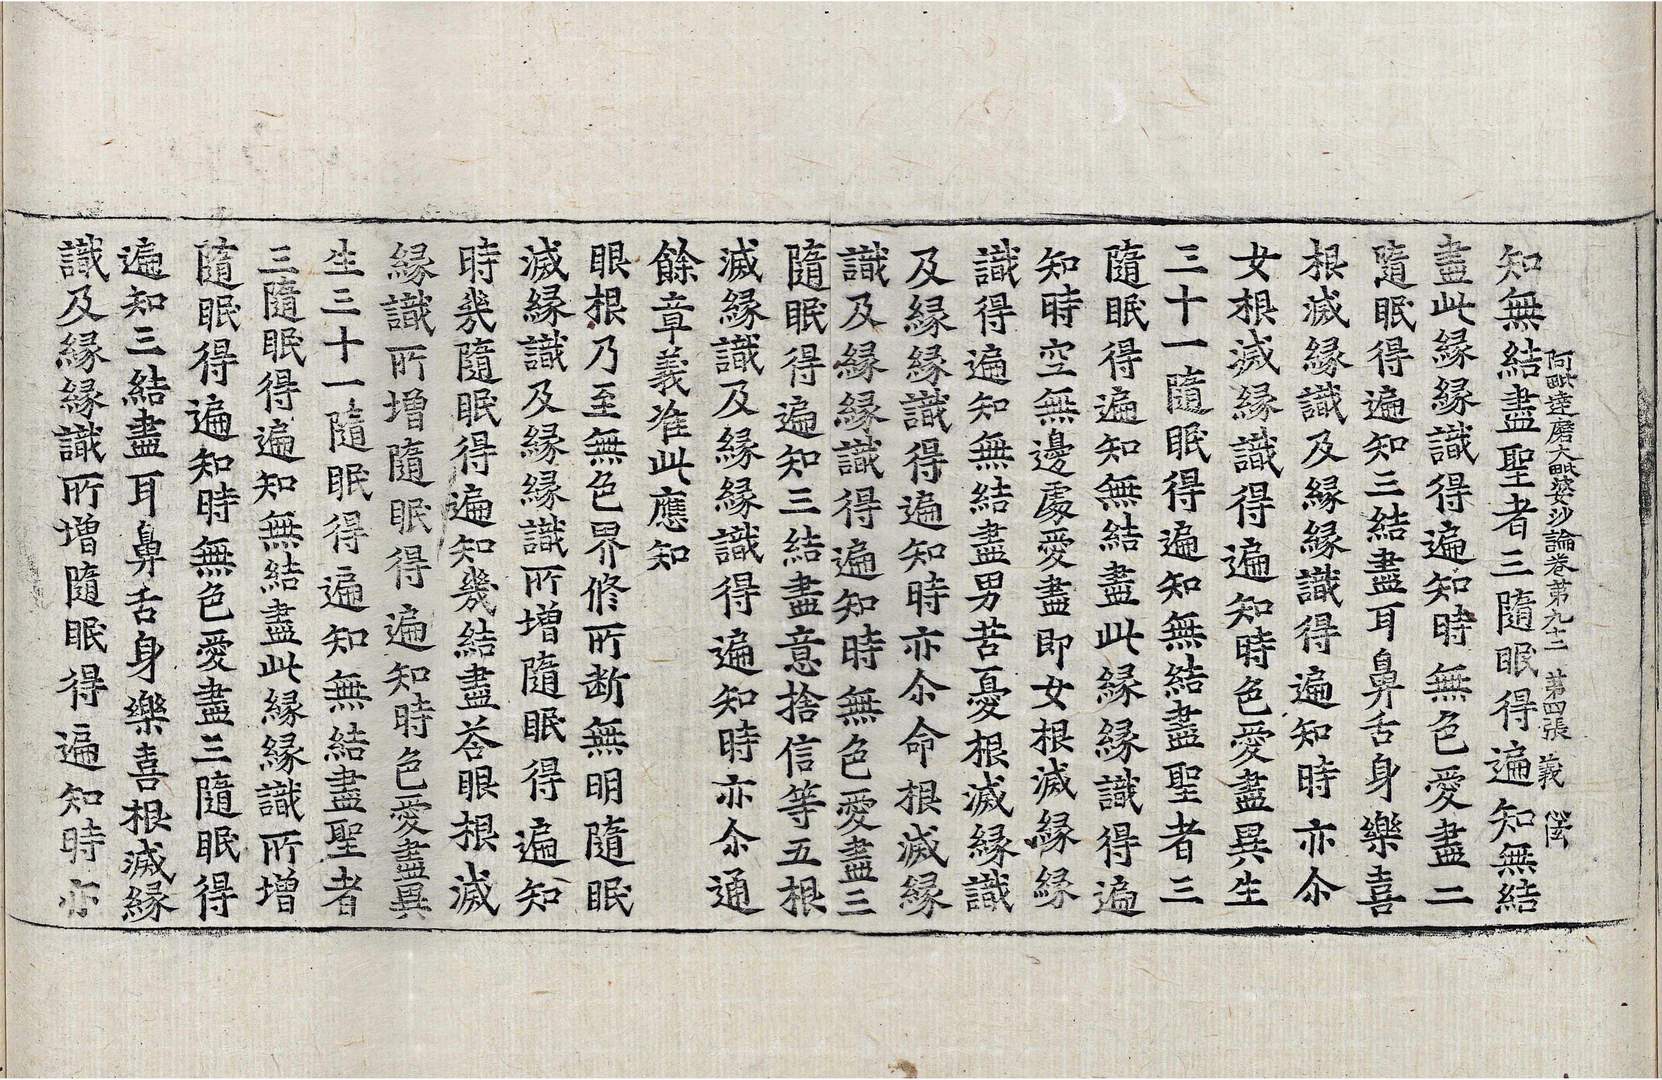 阿毗達磨大毗婆沙論卷第九十二 第四張 義
知無結盡聖者三隨眠得遍知無結
盡此縁縁識得遍知時無色愛盡二
隨眠得遍知三結盡耳鼻舌身樂喜
根滅縁識及縁縁識得遍知時亦尒
女根滅縁識得遍知時色愛盡異生
三十一隨眠得遍知無結盡聖者三
隨眠得遍知無結盡此縁縁識得遍
知時空無邊處愛盡即女根滅縁縁
識得遍知無結盡男苦憂根滅縁識
及縁縁識得遍知時亦尒命根滅縁
識及縁縁識得遍知時無色愛盡三
隨眠得遍知三結盡意捨信等五根
滅縁識及縁縁識得遍知時亦尒通
餘章義准此應知
眼根乃至無色界修所断無明隨眠
滅縁識及縁縁識所増隨眠得遍知
時㡬隨眠得遍知幾結盡荅眼根滅
縁識所増隨眠得遍知時色愛盡異
生三十一隨眠得遍知無結盡聖者
三隨眠得遍知無結盡此縁縁識所増
隨眠得遍知時無色愛盡三隨眠得
遍知三結盡耳鼻舌身樂喜根滅縁
識及縁縁識所増隨眠得遍知時亦